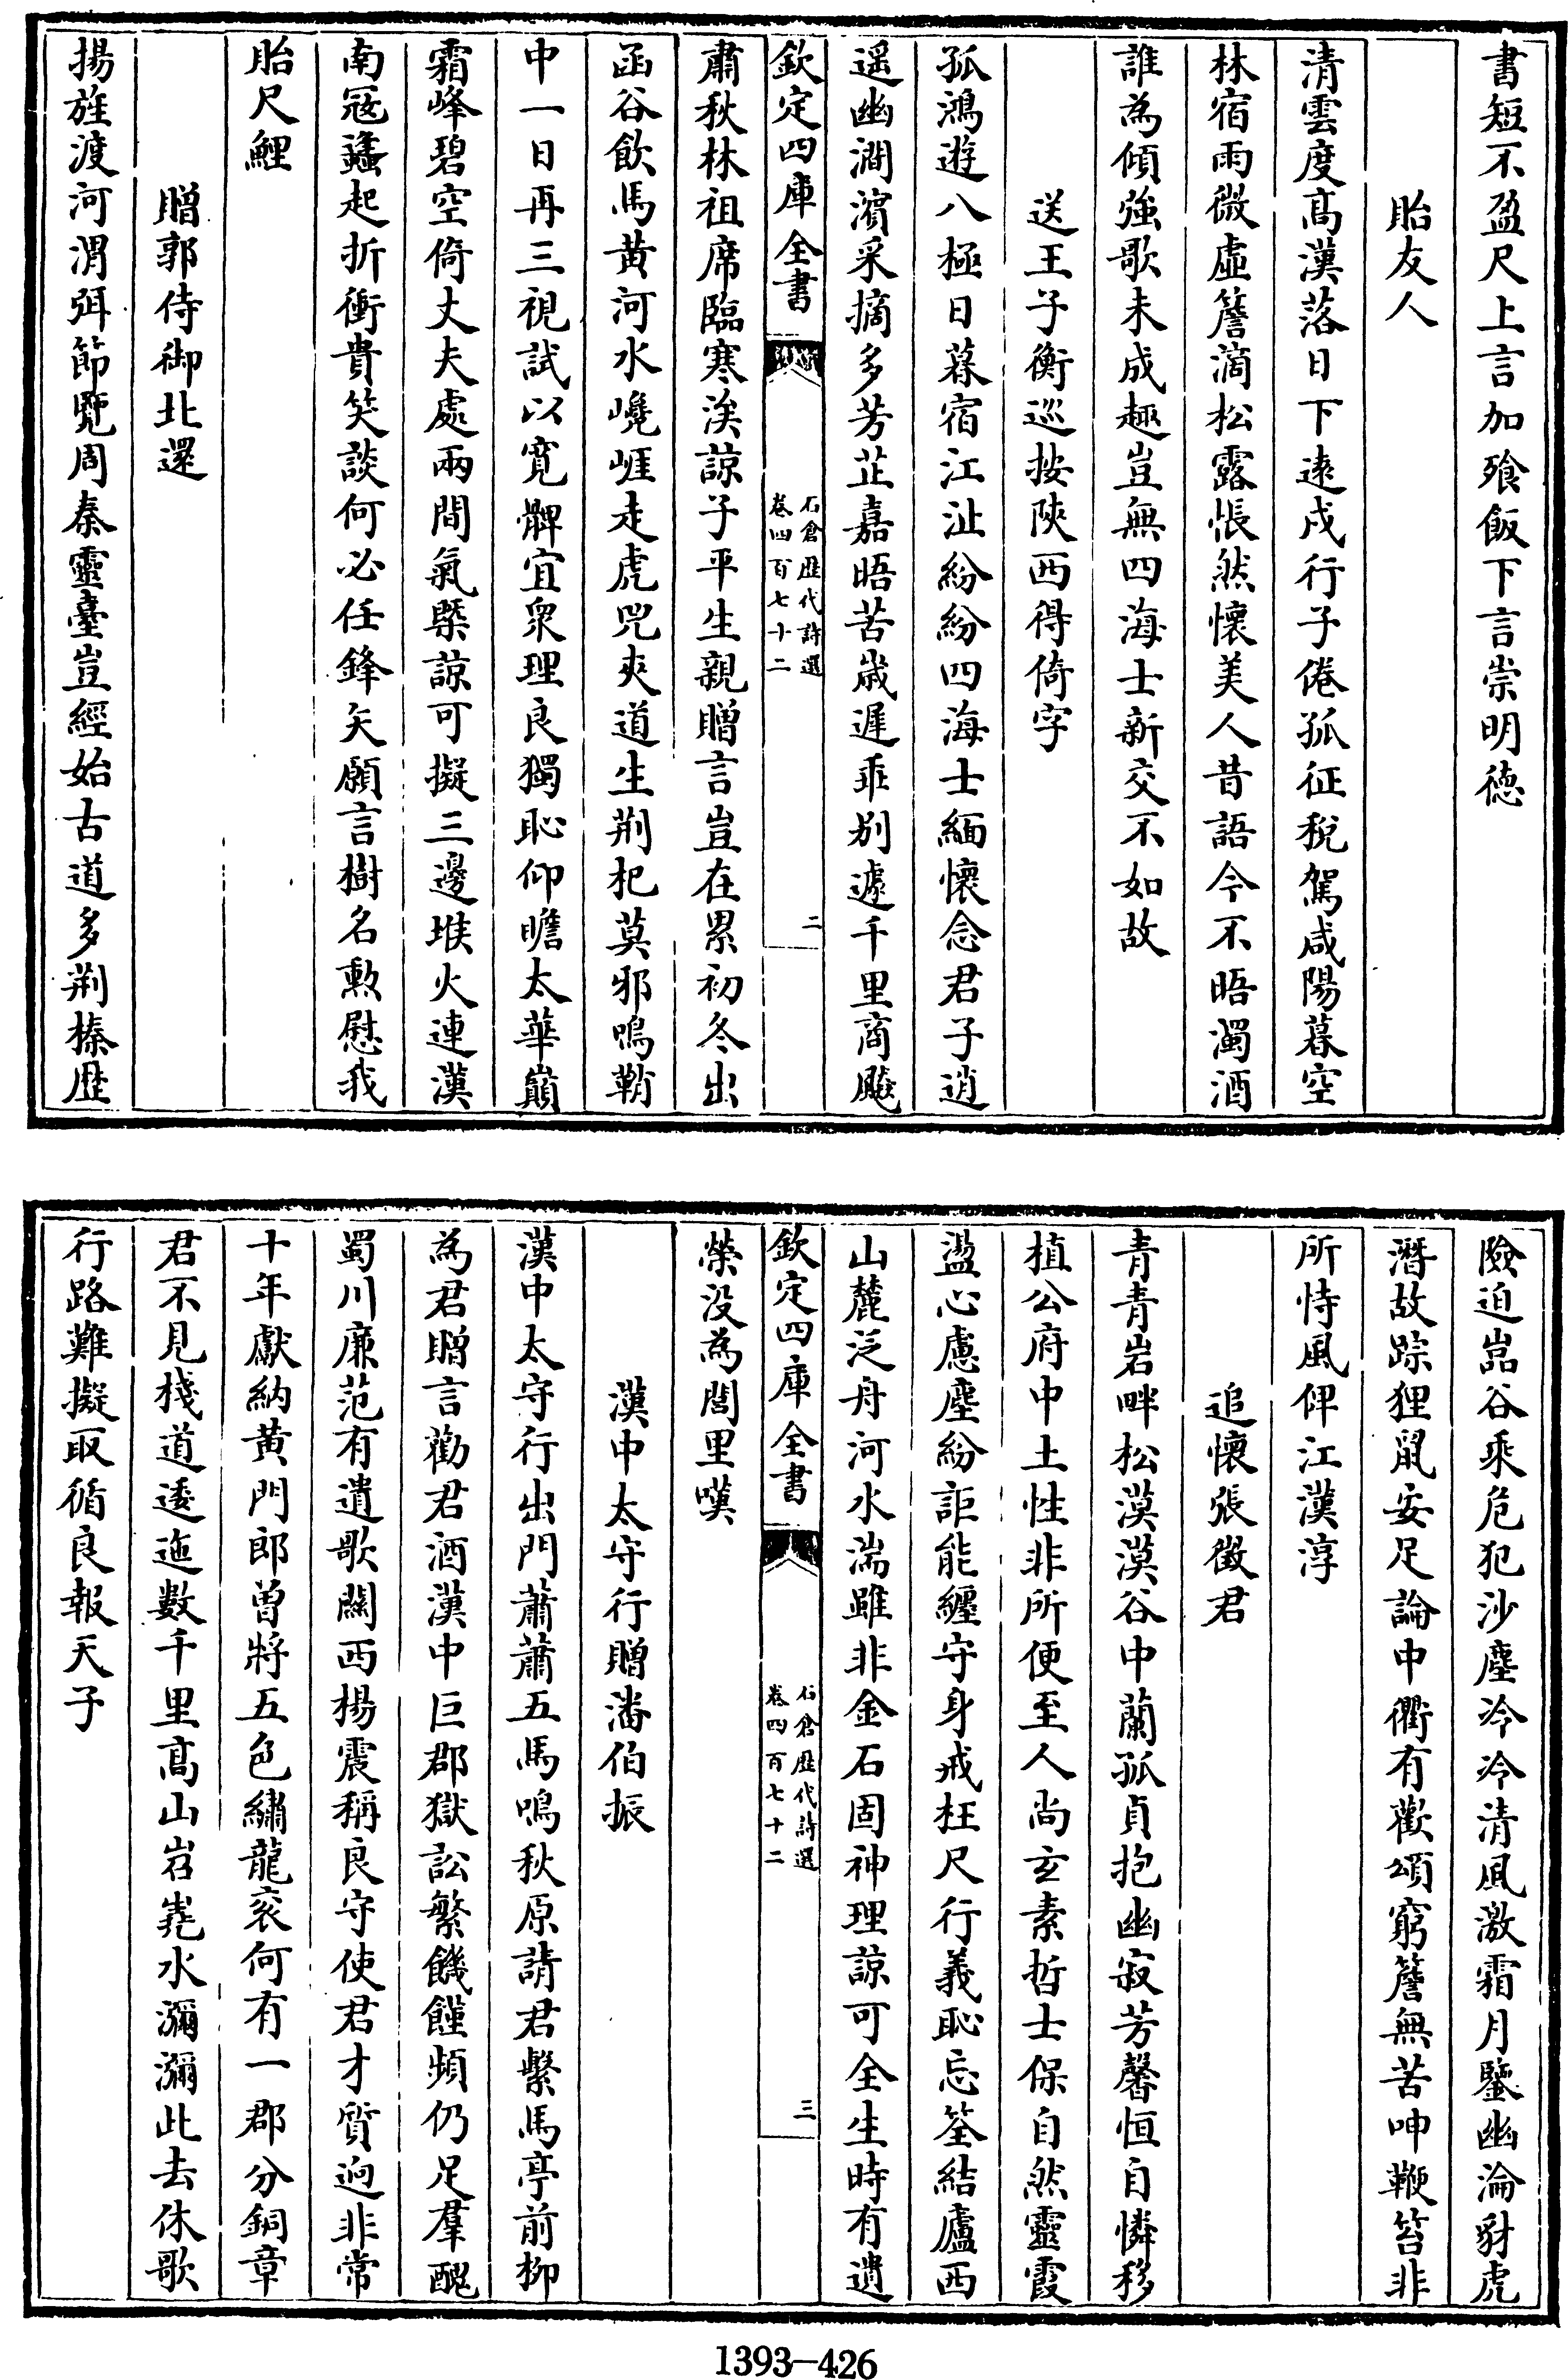 書短不盈尺上言加飱飯下言崇明徳
貽友人
清雲度髙漢落日下遠戍行子倦孤征税駕咸陽暮空
林宿雨微虚簷滴松露悵然懷美人昔語今不晤濁酒
誰為傾強歌未成趣豈無四海士新交不如故
送王子衡巡按陜西得倚字
孤鴻遊八極日暮宿江沚紛紛四海士緬懷念君子逍
遥幽澗濱采摘多芳芷嘉晤苦嵗遲乖别遽千里商飈
欽定四庫全書
石倉歴代詩選
卷四百七十二
二
肅秋林祖席臨寒涘諒子平生親贈言豈在累初冬出
函谷飲馬黄河水巉崕走虎兕夾道生荆杞莫邪鳴鞘
中一日再三視試以寛髀宜衆理良獨恥仰瞻太華巔
霜峰碧空倚丈夫處兩間氣槩諒可擬三邊堠火連漢
南冦蠭起折衝貴笑談何必任鋒矢願言樹名勲慰我
貽尺鯉
贈郭侍御北還
揚旌渡河渭弭節覽周秦靈臺豈經始古道多荆榛歴
險迫嵓谷乘危犯沙塵泠泠清風激霜月鑒幽淪豺虎
潛故踪狸鼠安足論中衢有歡頌窮簷無苦呻鞭笞非
所恃風俾江漢淳
追懷張徵君
青青岩畔松漠漠谷中蘭孤貞抱幽寂芳馨恒自憐移
植公府中土性非所便至人尚玄素哲士保自然靈霞
盪心慮塵紛詎能纒守身戒枉尺行義恥忘筌結廬西
山麓泛舟河水湍雖非金石固神理諒可全生時有遺
欽定四庫全書
石倉歴代詩選
卷四百七十二
三
榮没為閭里嘆
漢中太守行贈潘伯振
漢中太守行出門蕭蕭五馬鳴秋原請君繫馬亭前柳
為君贈言勸君酒漢中巨郡獄訟繁饑饉頻仍足羣醜
蜀川亷范有遺歌闗西楊震稱良守使君才質逈非常
十年獻納黄門郎曽將五色繡龍衮何有一郡分銅章
君不見棧道逶迤數千里髙山岧嶤水瀰瀰此去休歌
行路難擬取循良報天子
1393—426